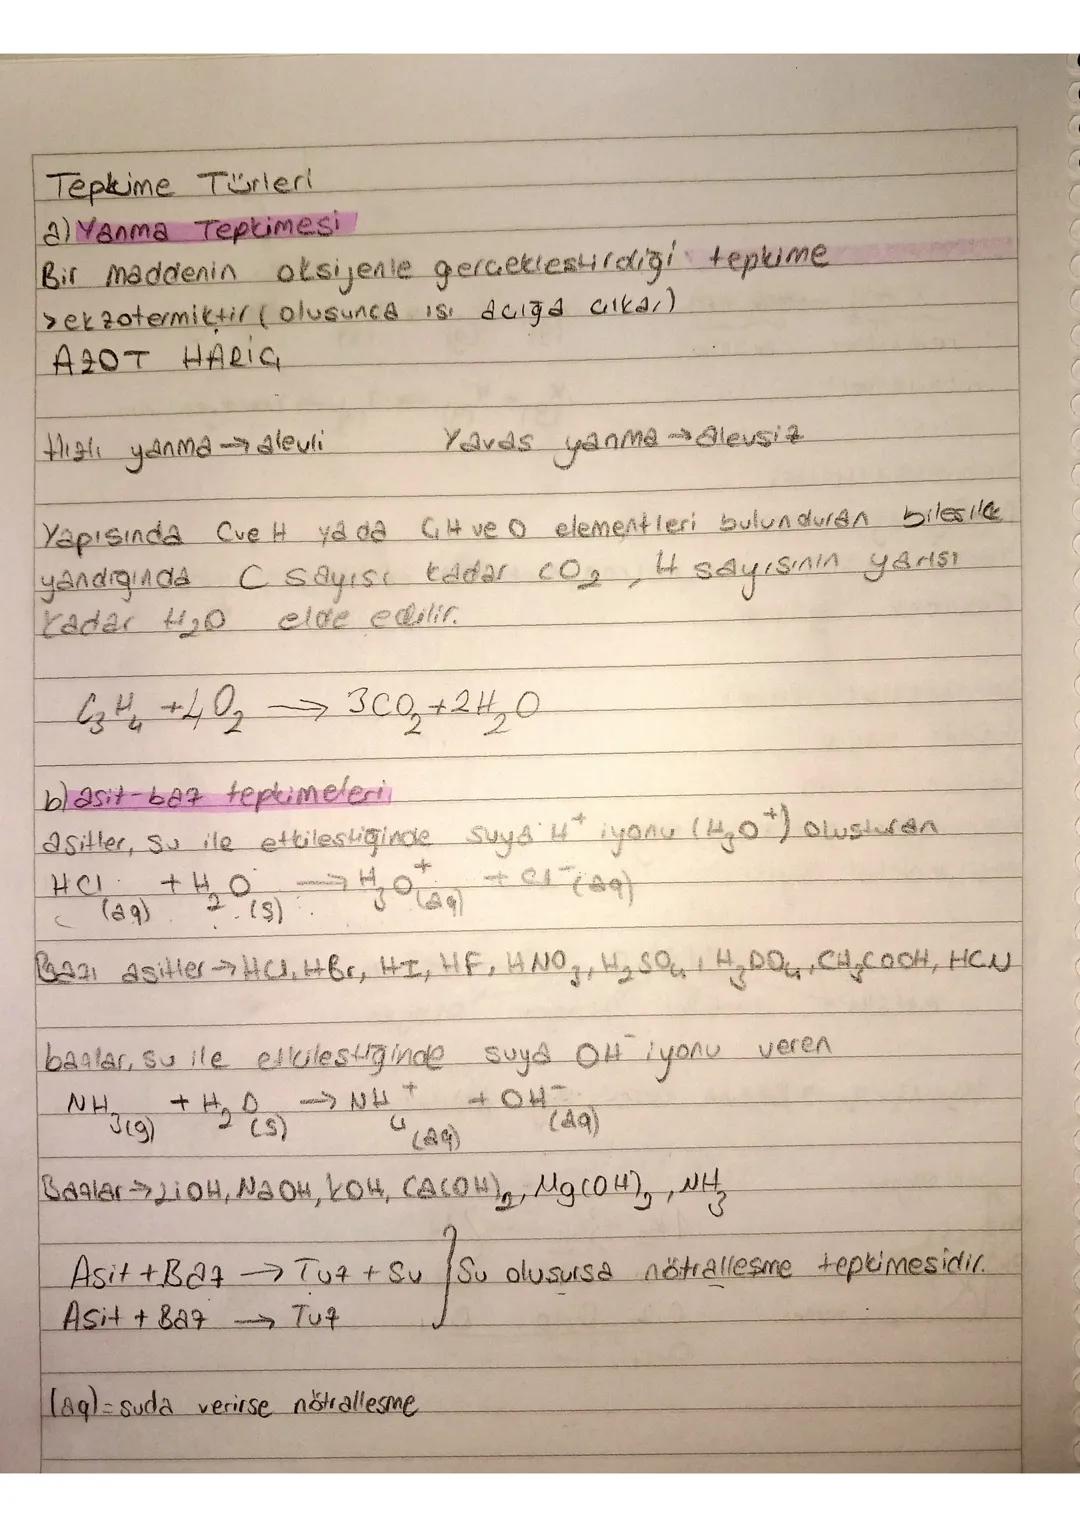 Tepkime Türleri
a) Yanma Tepkimesi
Bir maddenin oksijenle gerçekleştirdiği tepkime
>ekzotermiktir (oluşunca ısı açığa çıkar)
AZOT HARİÇ
Hızlı yanma → alevli Yavaş yanma → alevsiz
Yapısında C ve H ya da C, H ve O elementleri bulunduran bileşik
yandığında C sayısı kadar CO₂, H sayısının yarısı
kadar H₂O elde edilir.
C₃H₄ + 4O₂ → 3CO₂ + 2H₂O
b) asit-baz tepkimeleri
asitler, su ile etkileştiğinde suya H⁺ iyonu (H₃O⁺) oluşturan
HCl(aq) + H₂O(s) → H₃O⁺(aq) + Cl⁻(aq)
Bazı asitler → HCl, HBr, HI, HF, HNO₃, H₂SO₄, H₃PO₄, CH₃COOH, HCN
bazlar, su ile etkileştiğinde suya OH⁻ iyonu veren
NH₃(g) + H₂O(s) → NH₄⁺(aq) + OH⁻(aq)
Bazlar → LiOH, NaOH, KOH, Ca(OH)₂, Mg(OH)₂, NH₃
Asit + Baz → Tuz + Su ] Su oluşursa nötralleşme tepkimesidir.
Asit + Baz → Tuz
(aq) = suda verirse nötralleşme